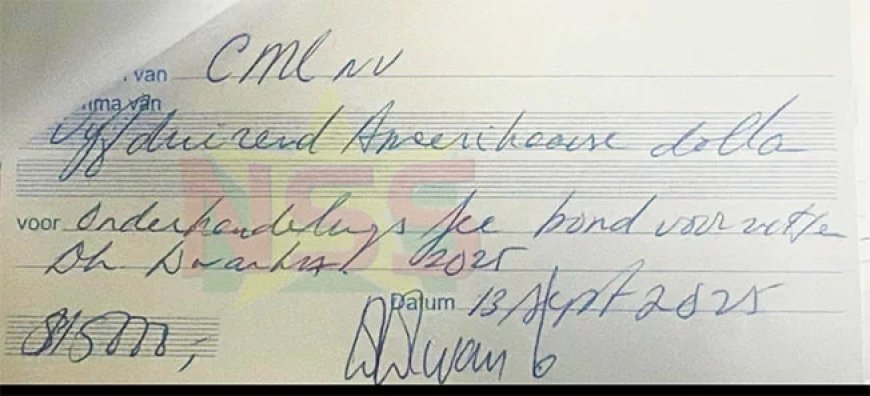 van CML NV
ma van
Vijfduizend Ameerikaanse dolla
voor onderhandelings fee bond voorzitter
Dh 2025
Datum 13 sept 2025
$ 15000,-
NSS